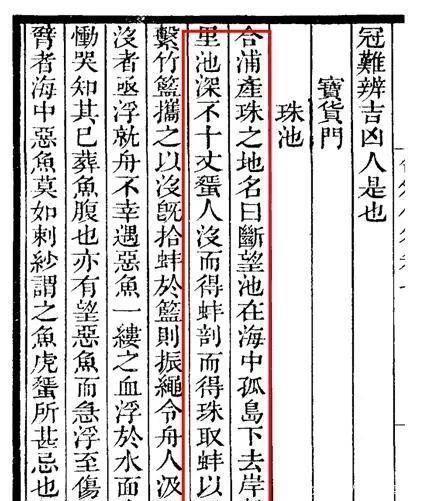 冠難辨吉凶人是也
寶貨門
珠池
合浦產珠之地名曰斷望池在海中孤島下去岸
里池深不十丈蜑人沒而得蚌剖而得珠取蚌以
繫竹籃攜之以沒旣拾蚌於籃則振繩令舟人汲
沒者亟浮就舟不幸遇惡魚一縷之血浮於水面
慟哭知其已葬魚腹也亦有望惡魚而急浮至傷
臂者海中惡魚莫如刺紗謂之魚虎蜑所甚忌也